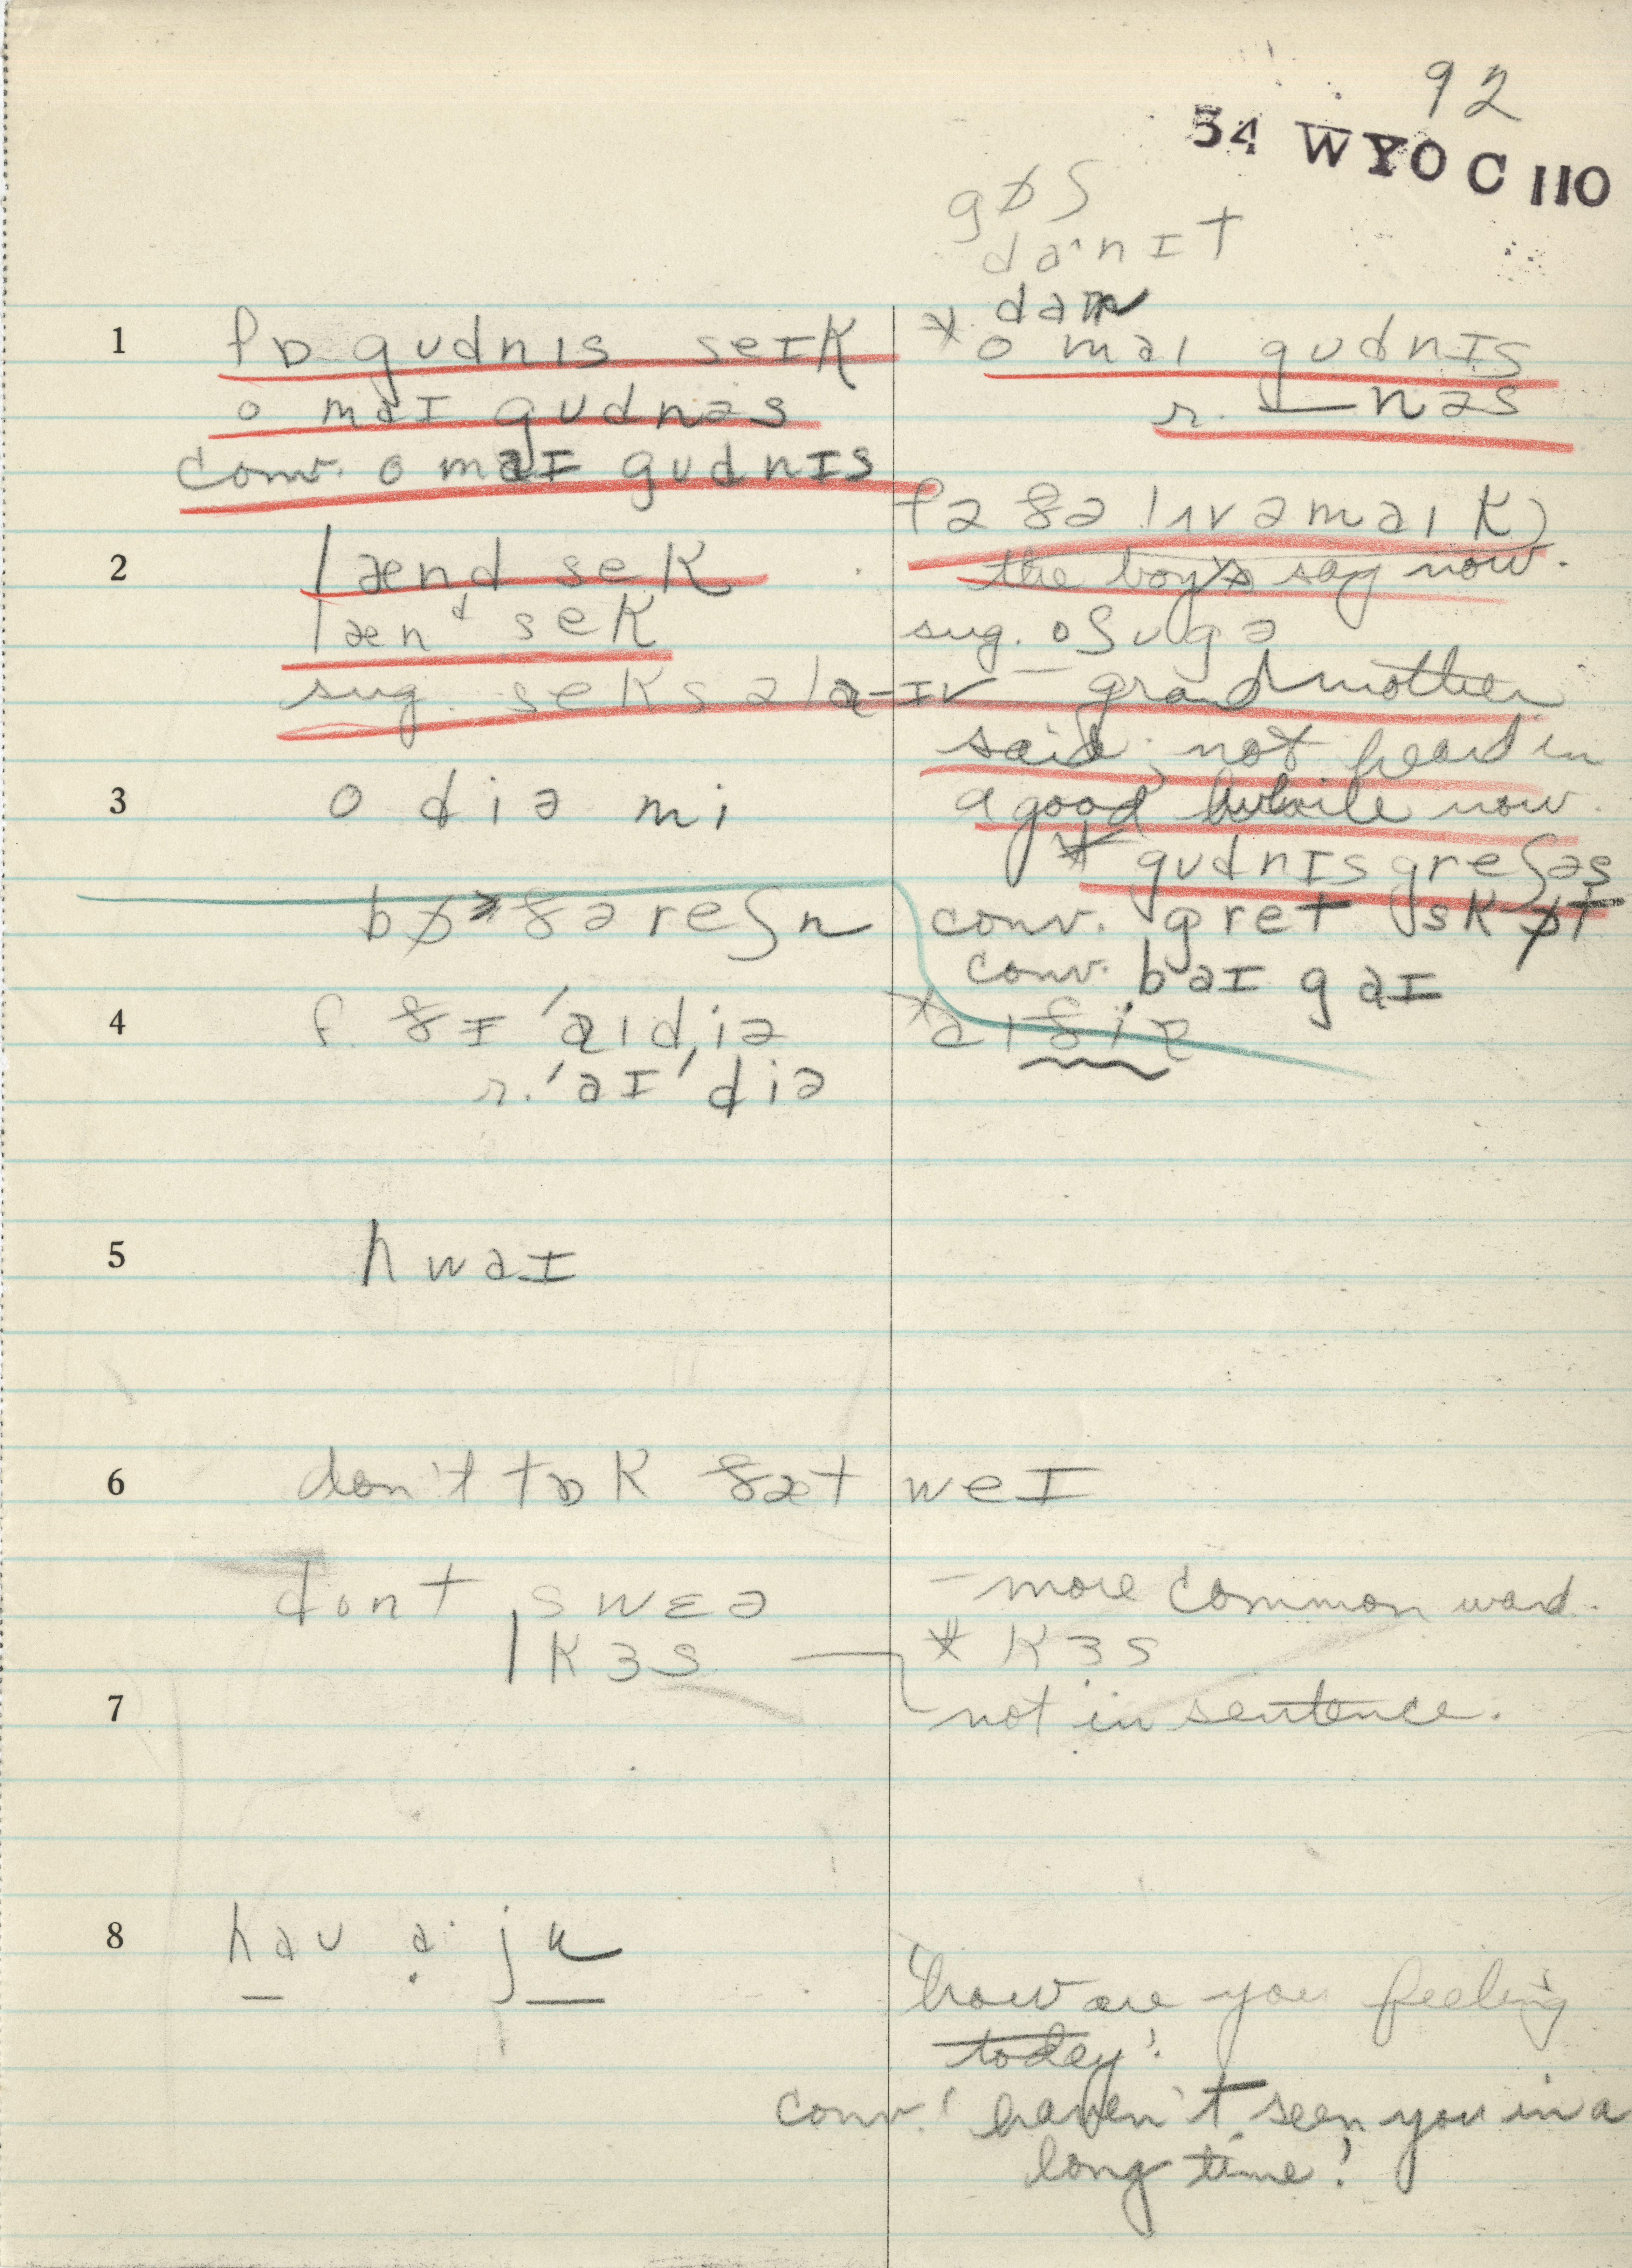 92
54 WYO C 110
gɒʃ
daˑnɪt
dam
1 fɒ gudnɪs seɪk
* o maɪ gudnɪs
o maɪ gudnəs
r. — nəs
conv. o maɪ gudnɪs
fə ðə lʌvəmaɪk)
2 lænd sek
the boys say now.
lænᵈ sek
sug. oʃugə
sug. seksəla-ɪv – grandmother
said; not heard in
3 o diə mi
a good while now.
* gudnɪsgreʃəs
bɒðəreʃn
conv. gret skɒt
conv. baɪ gaɪ
4 f. ðɪ 'aɪdiə
* aɪðiə
r. 'aɪ'diə
5 hwaɪ
6 don't tɒk ðæt weɪ
dont swɛə
– more common word.
| kɜs
* kɜs
7
not in sentence.
8 hau aˑ ju
'how are you feeling
today'.
conv. 'haven't seen you in a
long time!'